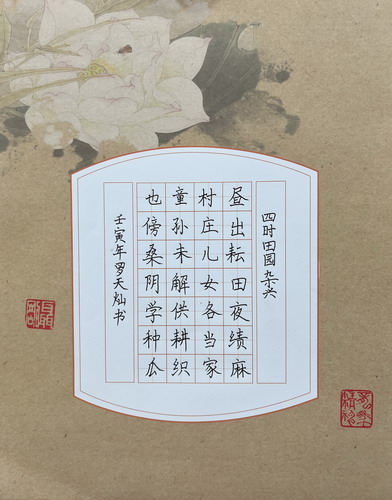 四时田园杂兴
昼出耘田夜绩麻
村庄儿女各当家
童孙未解供耕织
也傍桑阴学种瓜
壬寅年罗天灿书